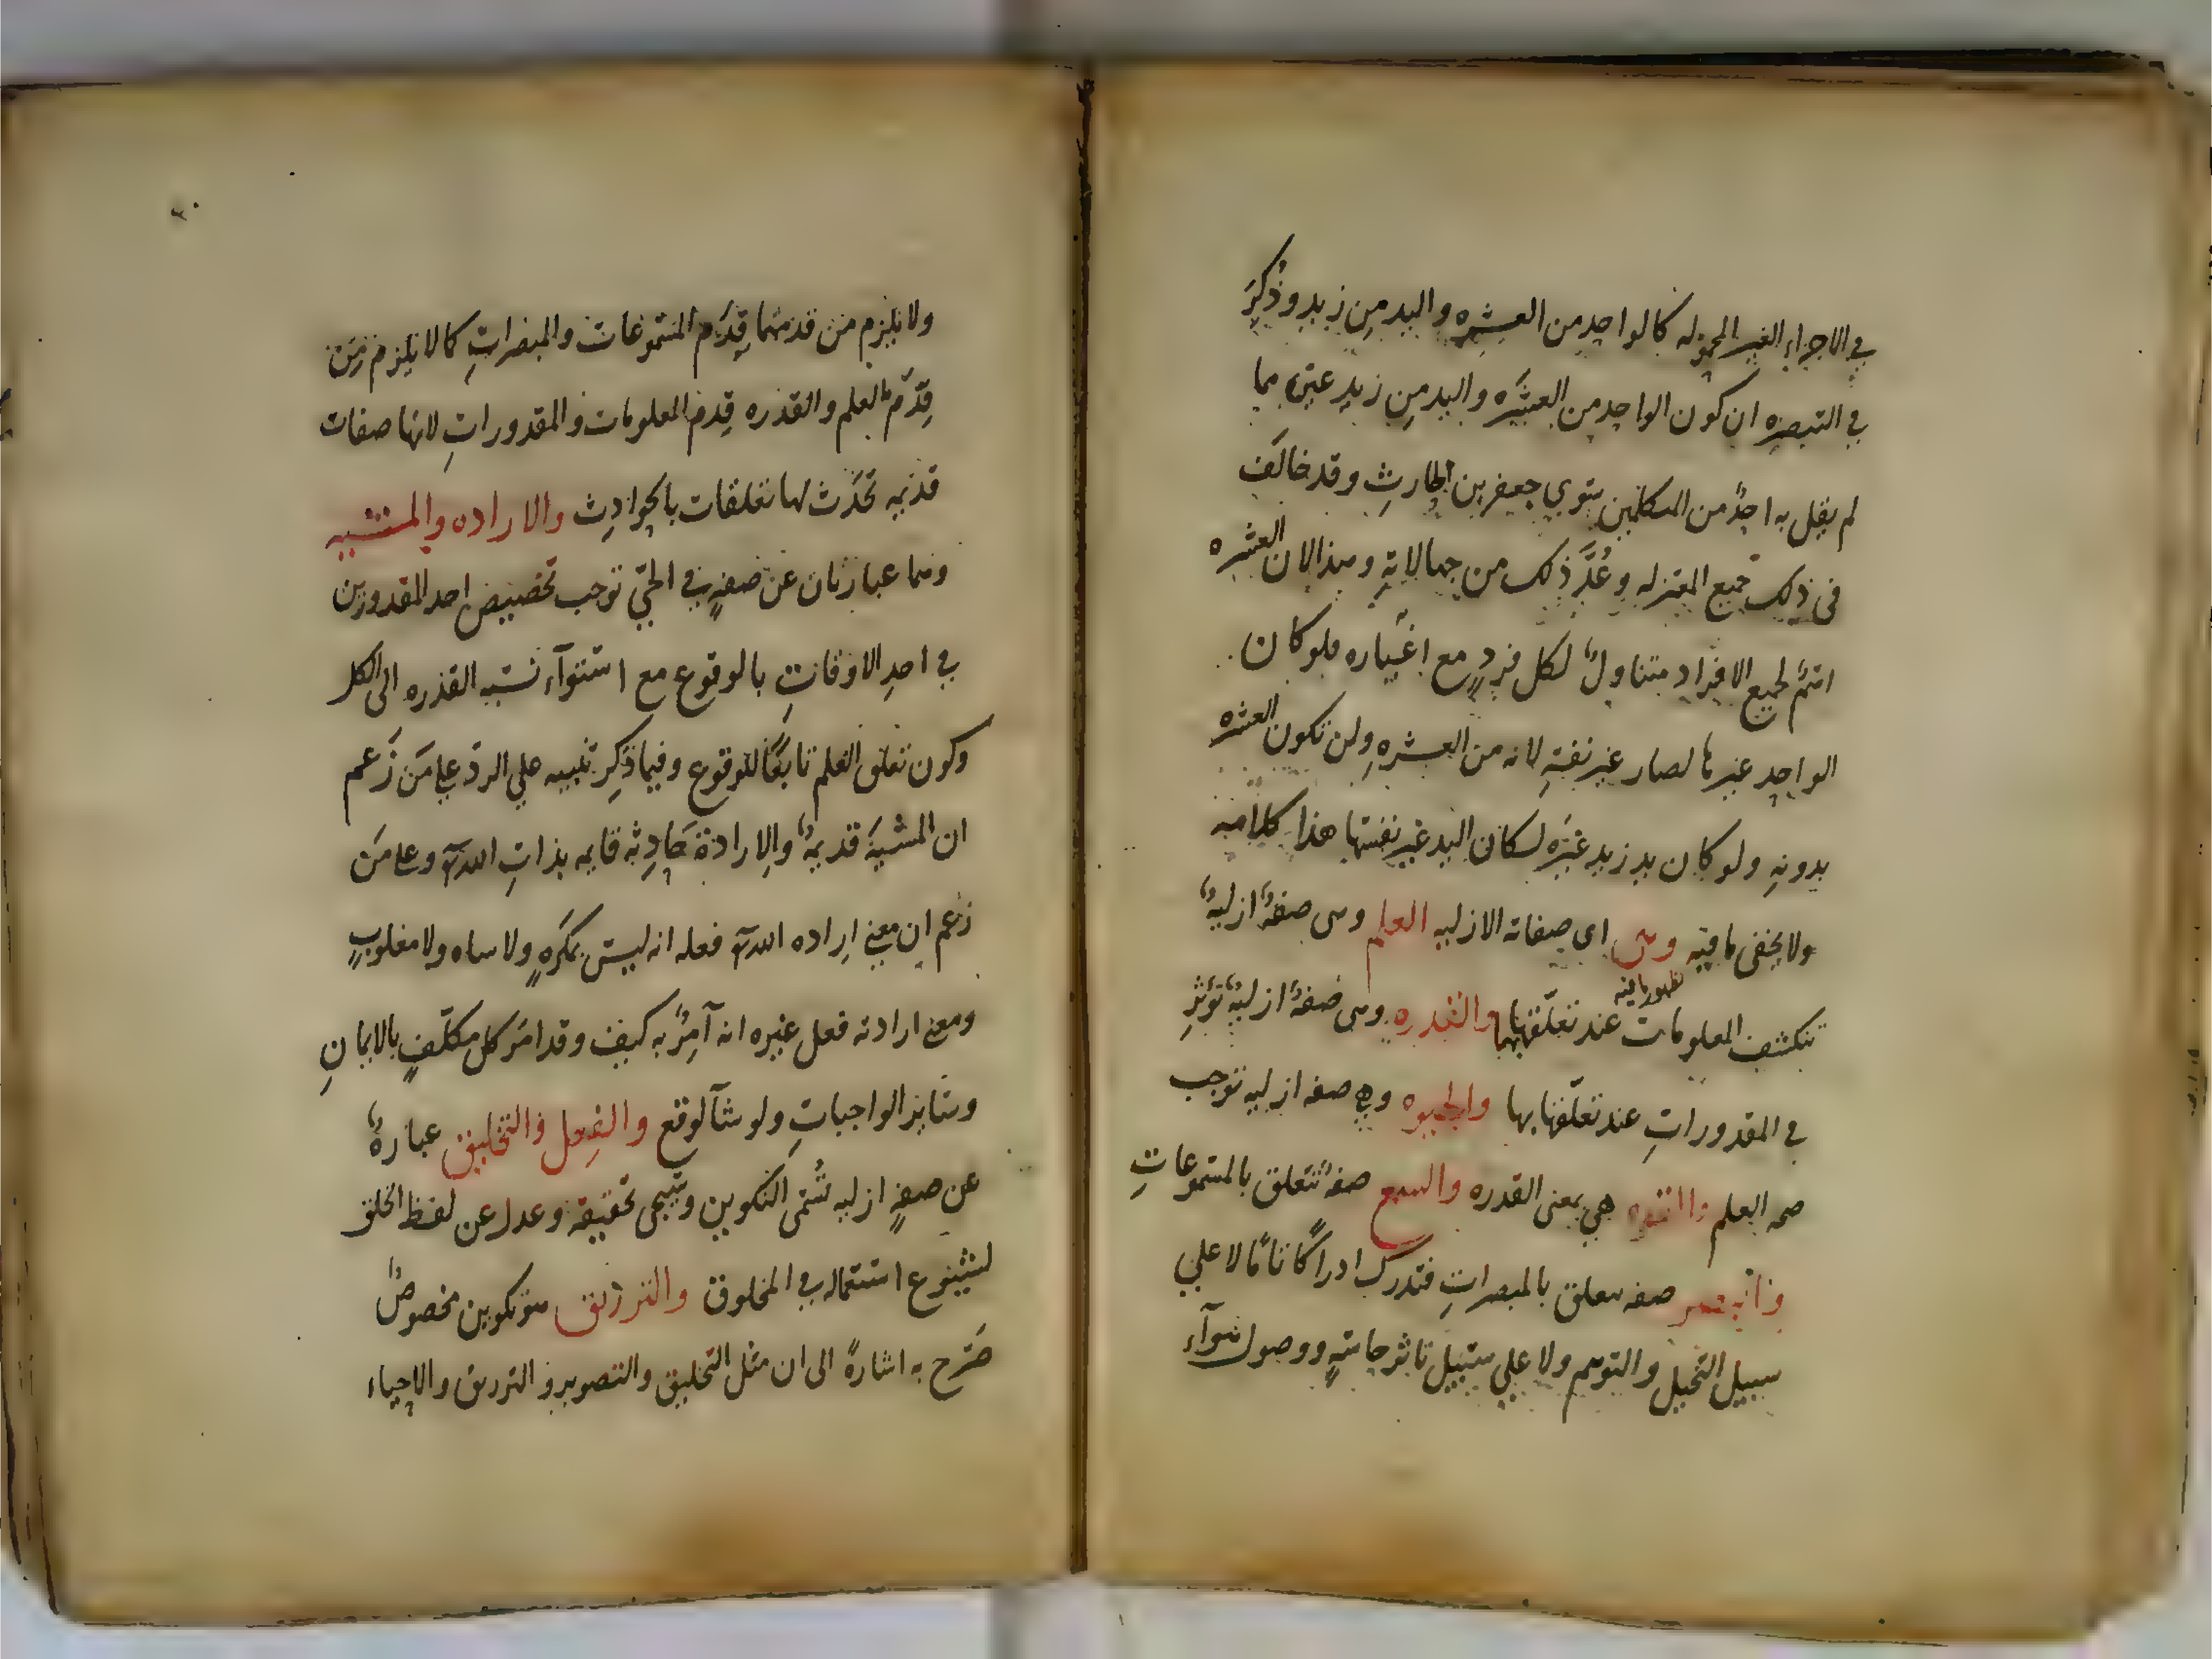 في الاجزاء الغير المحموله كالواحد من العشره واليد من زيد وذُكِرَ
في التبصره ان كون الواحد من العشَره واليد من زيد غيرَه مما
لم يقل به احدٌ من المتكلمين سوي جعفر بن الحارثِ وقد خالَف
فى ذلك جميع المعتزله وعُدَّ ذلك من جهالاتِهِ وهذا لان العشره
اسمٌ لجميع الافراد متناولٌ لكل فردٍ مع اغياره فلو كان
الواحد غيرها لصار غير نفسِهِ لانه من العشرهِ ولن تكون العشره
بدونهِ ولو كان يد زيد غيَره لكان اليد غير نفسها هذا كلامه
ولا يخفى ما فيه وهى اى صفاته الازليه العلم وهى صفةٌ ازليةٌ
تنكشف المعلومات عند تعلّقها بها والقدره وهى صفةٌ ازليةٌ تؤثر
في المقدوراتِ عند تعلّقها بها والحيوه وهي صفه ازليه توجب
صحه العلم والقوه هي بمعنى القدره والسمع صفةٌ تتعلق بالمسموعاتِ
والبصر صفه تتعلق بالمبصراتِ فتدرك ادراكًا تامًا لا علي
سبيل التخيل والتوهم ولا علي سبيل تاثر حاسةٍ ووصول هوآء
ولا يلزم من قدمهما قِدَم المسموعات والمبصراتِ كما لا يلزم مِن
قِدَم العلم والقدره قِدم المعلومات والمقدوراتِ لانها صفات
قديمه تحدَث لها تعلقات بالحوادِث والاراده والمشيه
وهما عبارتان عن صفهٍ في الحيّ توجب تخصيص احد المقدورين
في احدِ الاوقاتِ بالوقوع مع استوآء نسبه القدره الى الكل
وكون تعلق العلم تابعًا للوقوع وفيما ذُكِر تنبيه علي الردّ علي مَن زَعم
ان المشيةَ قديمةٌ والاِرادة حَادِثه قايمه بذاتِ الله تعالى وعلى مَن
زعم ان معني اِراده الله تعالى فعله انه ليس بمكرَهٍ ولا ساه ولا مغلوبٍ
ومعني ارادته فعل غيره انه آمِرٌ به كيف وقد امَر كل مكلّفٍ بالايمانِ
وساير الواجباتِ ولو شآ لوقع والفِعل والتخليق عبارةٌ
عن صفهٍ ازليه تُسَمى التكوين وسيجى تحقيقه وعدل عن لفظ الخلق
لشيوع استعماله في المخلوق والترزيق هو تكوين مخصوصٌ
صَرَّح به اشارةً الى ان مثل التخليق والتصوير والترزيق والاحياء